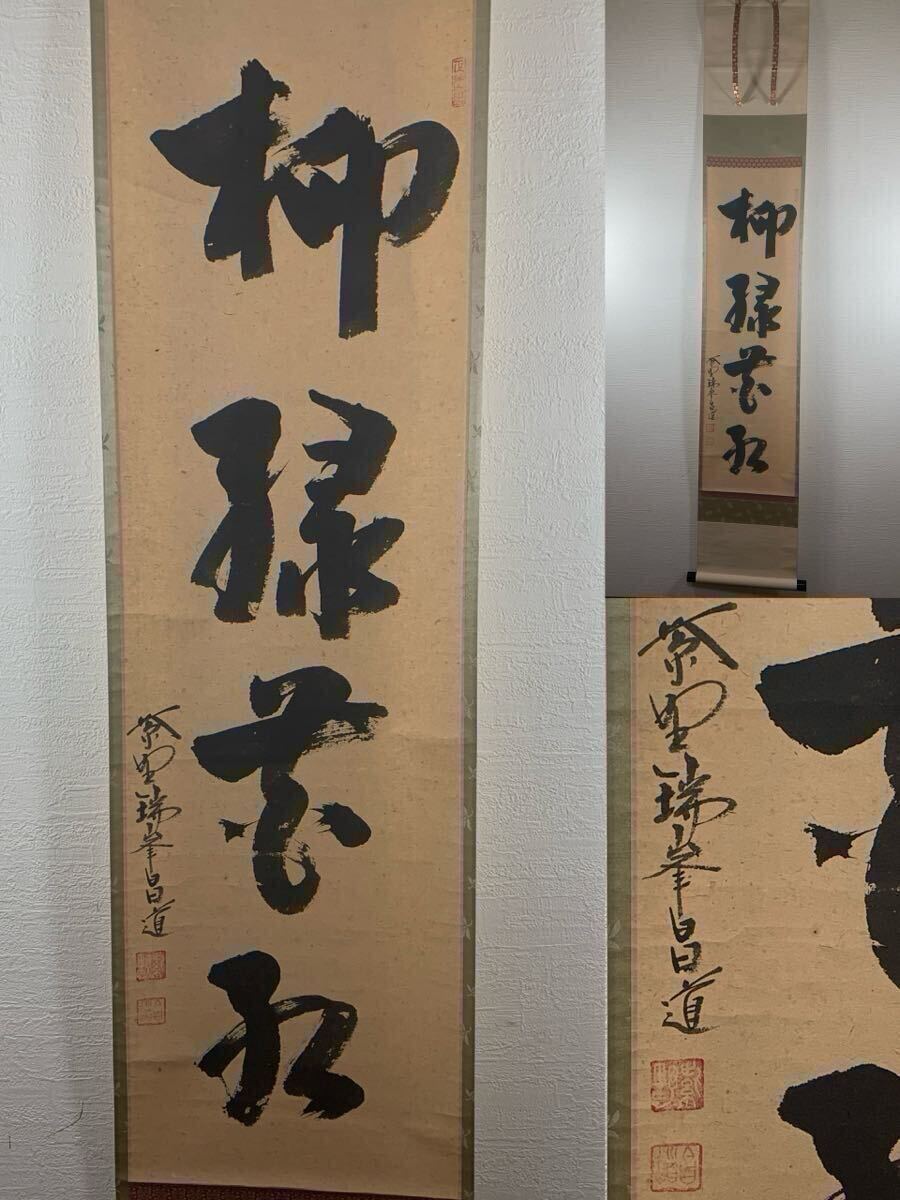 柳緑花紅
紫野瑞峯昌道
柳緑花紅
紫野瑞峯昌道
紫野瑞峯昌道